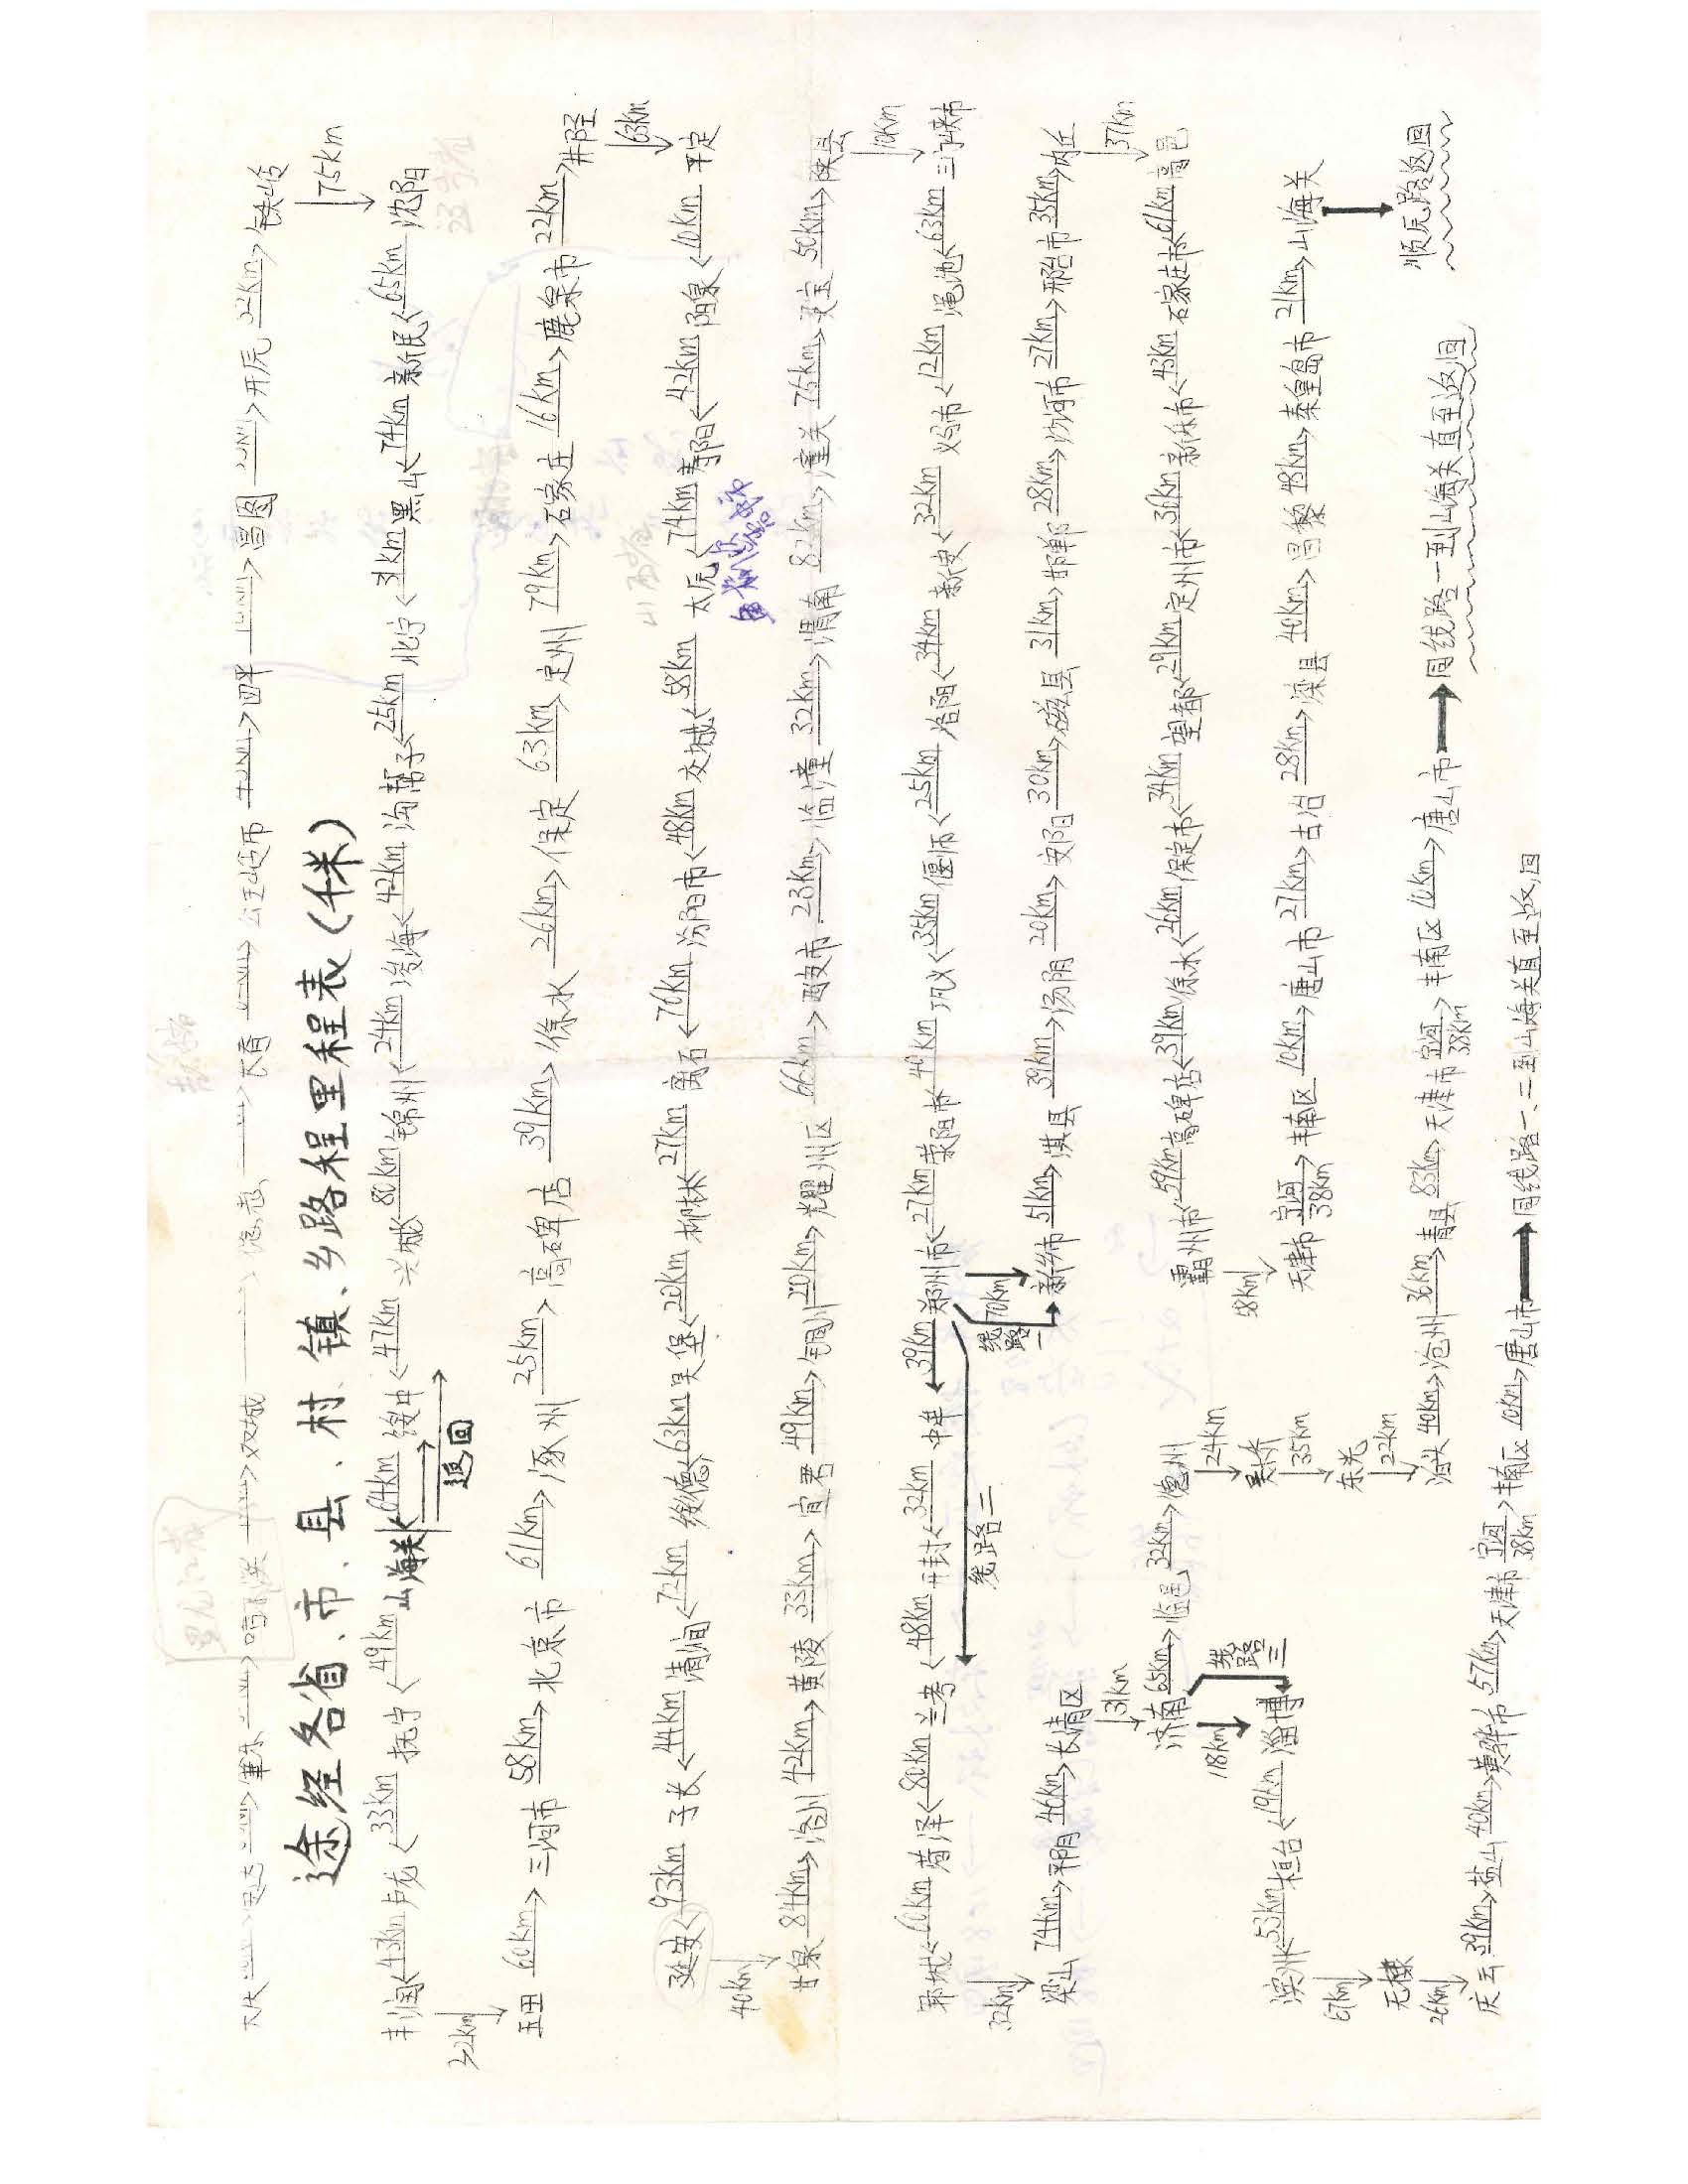 双城
长春
公主岭市
四平
昌图
开原
铁岭
75km
途经各省、市、县、村、镇、乡路程里程表(千米)
丰润<43km 卢龙<33km 抚宁<49km 山海关<64km 绥中<47km 兴城<80km 锦州<24km 凌海<42km 沟帮子<25km 北宁<31km 黑山<74km 新民<65km 沈阳
返回
60km>三河市 58km>北京市 61km>涿州 25km>高碑店 39km>徐水 26km>保定 63km>定州 79km>石家庄 16km>鹿泉市 22km>井陉
63km
延安<93km 子长<44km 清涧<72km 绥德<63km 吴堡<20km 柳林<27km 离石<76km 汾阳市<48km 交城<58km 太原<74km 寿阳<42km 阳泉<10km 平定
山西省
40km
甘泉 84km>洛川 42km>黄陵 33km>宜君 49km>铜川 20km>耀州区 66km>西安市 23km>临潼 32km>渭南 82km>潼关 75km>灵宝 50km>陕县
10km
郓城<60km 菏泽<80km 兰考<48km 开封<32km 中牟 39km 郑州市<27km 荥阳市<40km 巩义<35km 偃师<25km 洛阳<34km 新安<32km 义马市<12km 渑池<63km 三门峡市
线路二
线路一
70km
32km
梁山 74km>平阴 46km>长清区
新乡市 51km>淇县 39km>汤阴 20km>安阳 30km>磁县 31km>邯郸 28km>沙河市 27km>邢台市 35km>内丘
31km
37km
济南 65km>临邑 32km>德州
霸州市<59km 高碑店<39km 徐水<26km 保定市<34km 望都<29km 定州市<36km 新乐市<43km 石家庄市<61km 高邑
线路三
118km
24km
吴桥
35km
东光
22km
58km
滨州<53km 桓台<19km 淄博
天津市 宁河 38km>丰南区 10km>唐山市 27km>古冶 28km>滦县 40km>昌黎 48km>秦皇岛市 21km>山海关
顺原路返回
67km
无棣
26km
泊头 40km>沧州 36km>青县 83km>天津市 宁河 38km>丰南区 10km>唐山市→同线路一到山海关直至返回
庆云 39km>盐山 40km>黄骅市 57km>天津市 宁河 38km>丰南区 10km>唐山市→同线路一、二到山海关直至返回